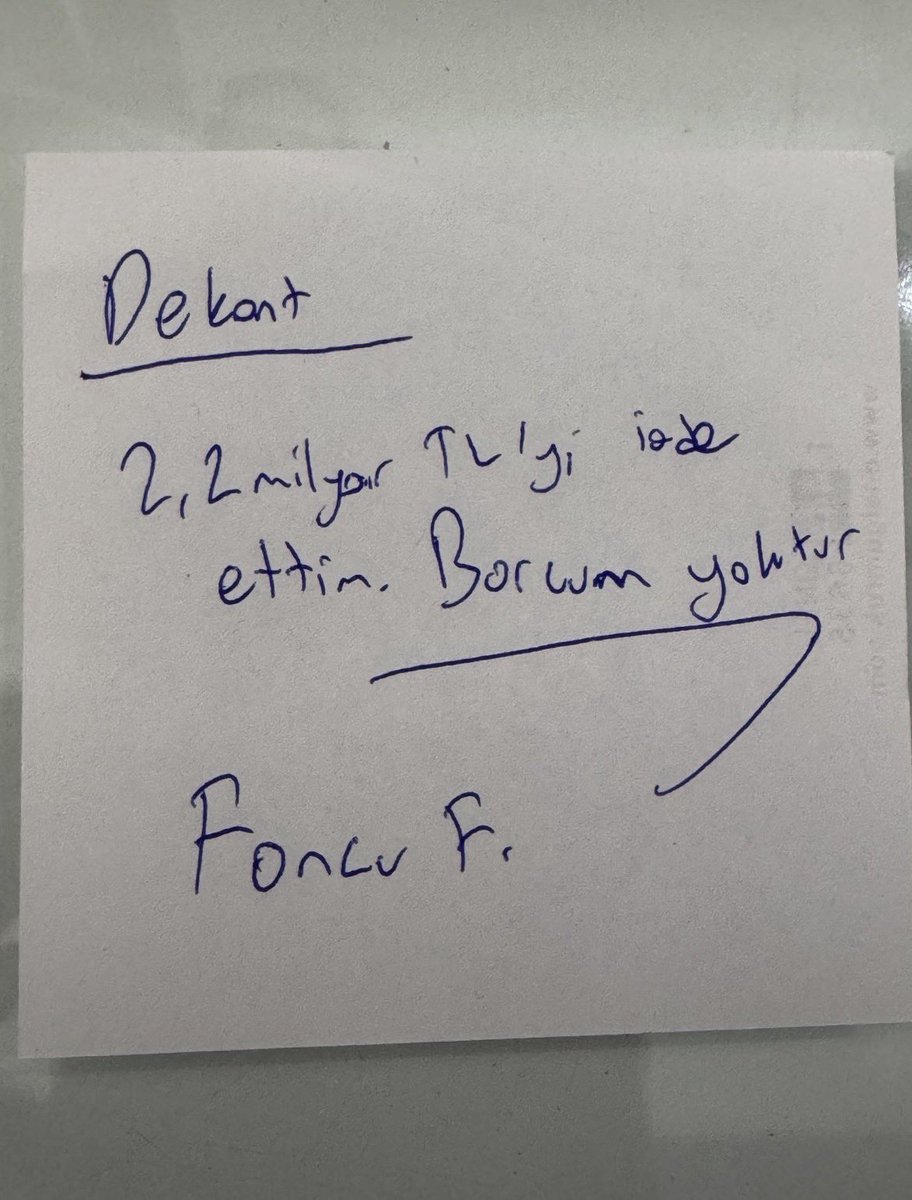 Dekont
2,2 milyar TL'yi iade
ettim. Borcum yoktur
Foncu F.